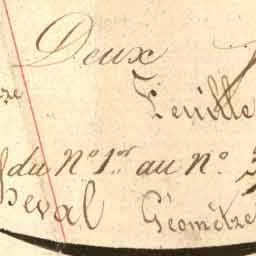 Deux
Feuille
du N° 1er au N° 3
Géomètre